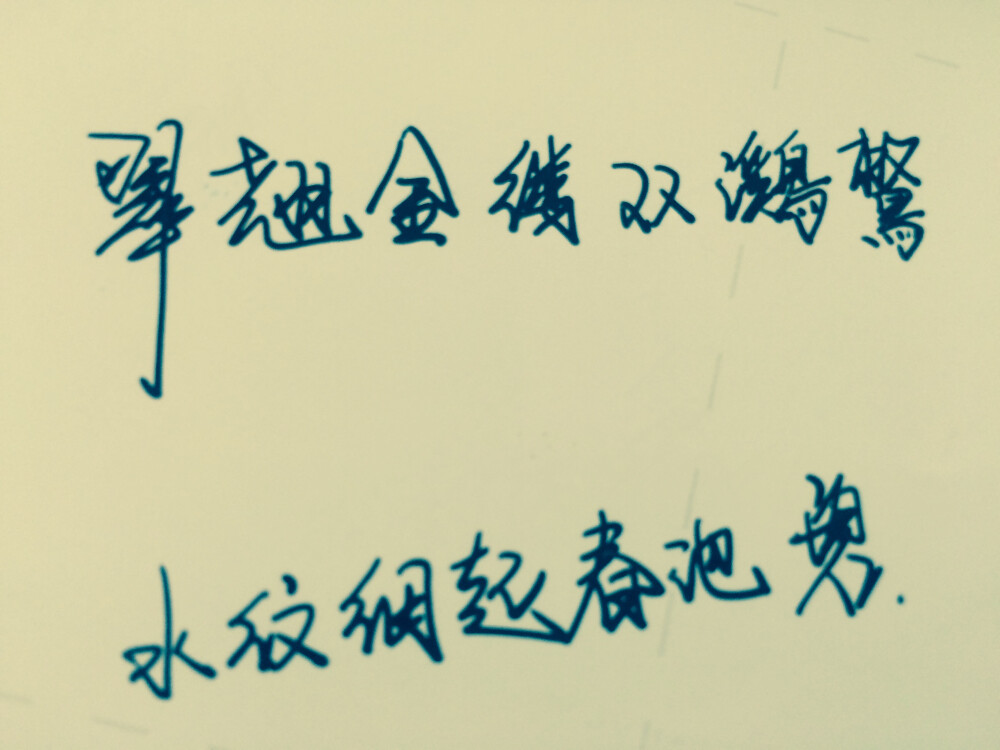 翠翘金缕双鸂鶒
水纹细起春池碧.